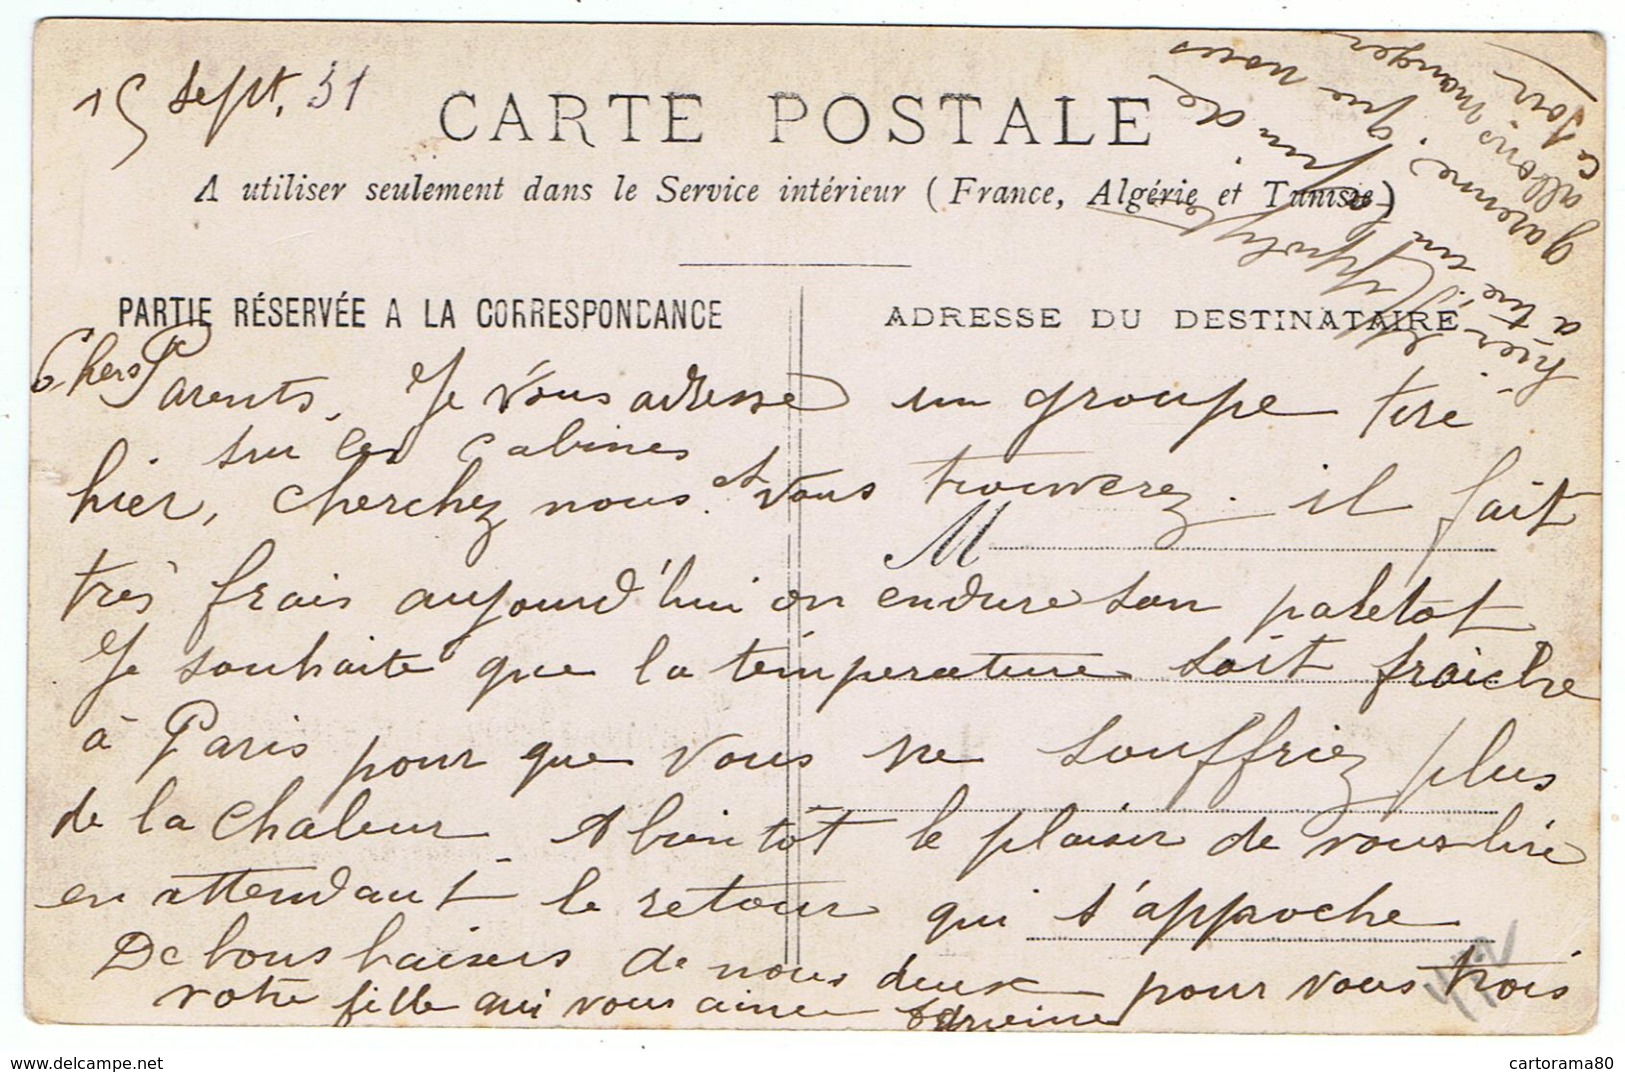 15 Sept. 31
CARTE POSTALE
A utiliser seulement dans le Service intérieur (France, Algérie et Tunisie)
PARTIE RÉSERVÉE A LA CORRESPONDANCE
ADRESSE DU DESTINATAIRE
Chers Parents, Je vous adresse un groupe tiré
sur les cabines
hier, cherchez nous et vous trouverez. il fait
M
très frais aujourd'hui on endure son paletot
Je souhaite que la température soit fraiche
à Paris pour que vous ne souffriez plus
de la chaleur. A bientot le plaisir de vous lire
en attendant le retour qui s'approche
De bons baisers de nous deux pour vous trois
votre fille qui vous aime
Hyppolyte
hier
a tiré un lapin de
garenne. que nous
allons manger
ce soir
cartorama80
www.delcampe.net